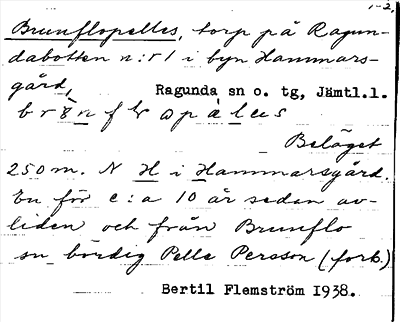 1-2.
Brunflopelles, torp på Ragun-
dabotten n:r 1 i byn Hammars-
gård,
Ragunda sn o. tg, Jämtl.l.
Beläget
250 m. N H i Hammarsgård.
En för c:a 10 år sedan av-
liden och från Brunflo
sn bördig Pelle Persson (fork.)
Bertil Flemström 1938.